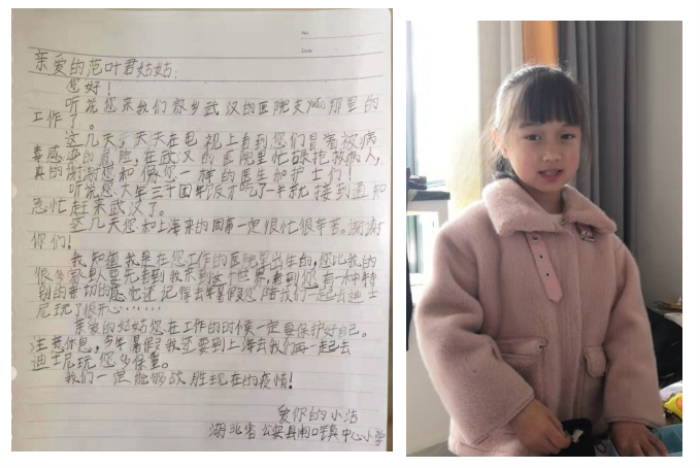 No.
Date
亲爱的范叶君姑姑：
您好！
听说您来我们家乡武汉的医院支 那里的
工作了。
这几天，天天在电视上看到您们冒着被病
毒感染的危险，在武汉的医院里忙碌抢救病人，
真的谢谢您和像您一样的医生和护士们！
听说您大年三十团年饭才吃了一半就接到通知
急忙赶来武汉了。
这几天您和上海来的同事一定很忙很辛苦。谢谢
你们！
我知道我是在您工作的医院里出生的，您比我的
很多家人 先看到我来到这个世界，看到您有一种特
别的亲切的感觉 记得去年暑假您陪我们一起去迪士
尼玩了很开心……
亲爱的姑姑您在工作的时候一定要保护好自己。
注意休息，今年暑假了我还要到上海去我们再一起去
迪士尼玩您多保重。
我们一定能够战胜现在的疫情！
爱你的小洁
湖北省公安县闸口镇中心小学